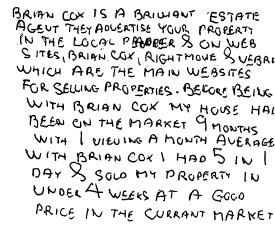 BRIAN COX IS A BRILLIANT ESTATE
AGENT THEY ADVERTISE YOUR PROPERTY
IN THE LOCAL PAPER & ON WEB
SITES, BRIAN COX, RIGHTMOVE &
WHICH ARE THE MAIN WEBSITES
FOR SELLING PROPERTIES. BEFORE BEING
WITH BRIAN COX MY HOUSE HAD
BEEN ON THE MARKET 9 MONTHS
WITH 1 VIEWING A MONTH AVERAGE
WITH BRIAN COX I HAD 5 IN 1
DAY & SOLD MY PROPERTY IN
UNDER 4 WEEKS AT A GOOD
PRICE IN THE CURRANT MARKET